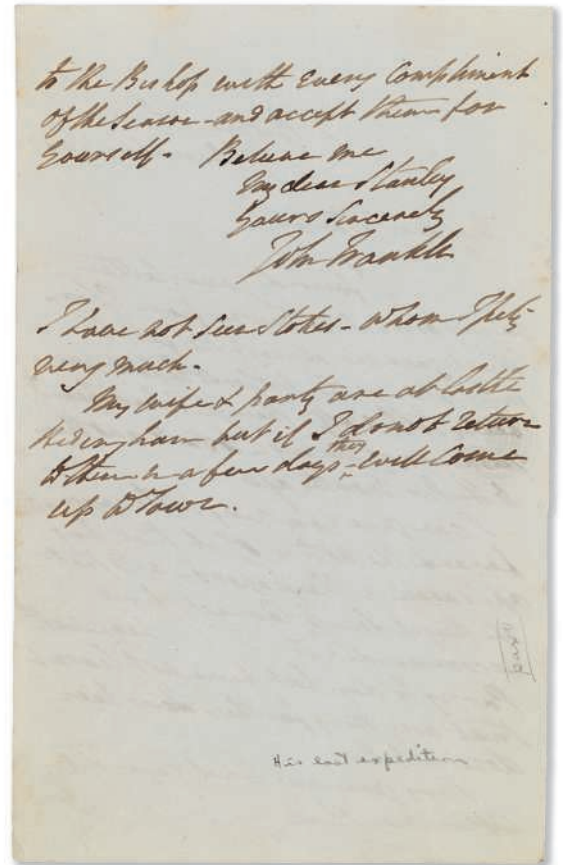 to the Bishop with every Compliment
of the Season - and accept them for
yourself - Believe me
My dear Stanley
Yours Sincerely
John Franklin
I have not seen Stokes - whom I pity
very much -
My wife & party are at Castle
Hedingham but if I do not return
to them in a few days - they will Come
up to Town.
His last expedition